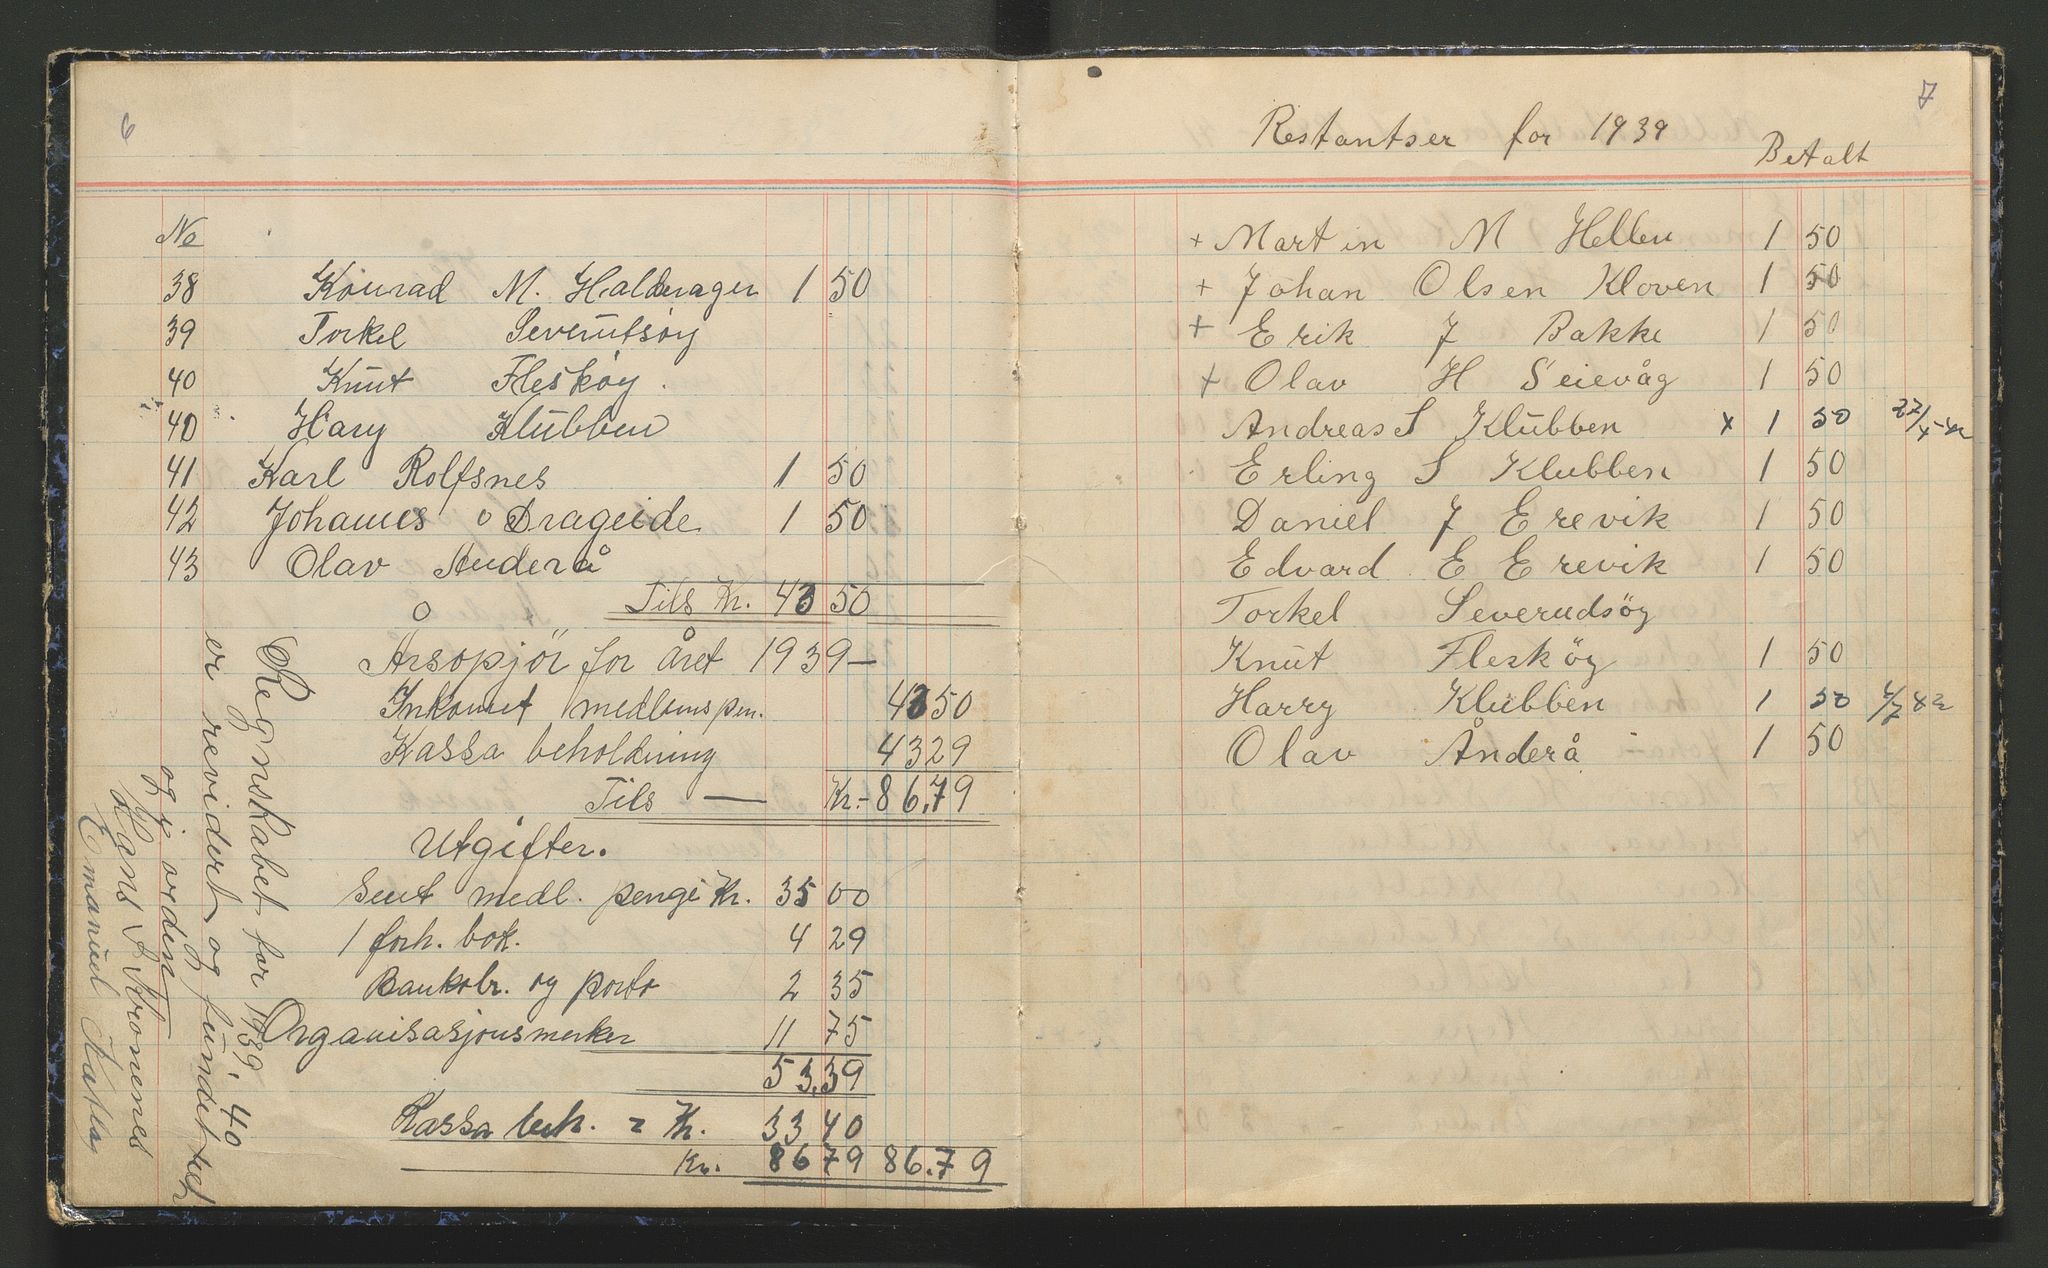 6
No
38 Konrad M. Halderager 1 50
39 Torkel Severutsøy
40 Knut Fleskøy.
40 Hary Klubben
41 Karl Rolfsnes 1 50
42 Johannes O Drageide 1 50
43 Olav Anderå
Tils Kr. 43 50
Årsopjör for året 1939 —
Inkomet medlemspen. 43 50
Kassa beholdning 43 29
Tils — Kr. - 86,79
Utgifter.
Sent medl. pengi Kr. 35 00
1 forh. bok. 4 29
Bankobr. og porto 2 35
Organisasjonsmerker 11 75
53,39
Kassa beh. = Kr. 33 40
Kr. 86 79 86.79
Regnskabet for 1939, 40
er revidert og fundet ret
og i orden
Hans A Aronenes
Emanuel
7
Restantser for 1939
Betalt
+ Martin M Hellen 1 50
+ Johan Olsen Kloven 1 50
+ Erik J Bakke 1 50
+ Olav H Seievåg 1 50
Andreas S Klubben x 1 50 27/4-42
Erling S Klubben 1 50
Daniel J Erevik 1 50
Edvard E Erevik 1 50
Torkel Severudsöy
Knut Flesköy 1 50
Harry Klubben 1 50 4/7 42
Olav Ånderå 1 50